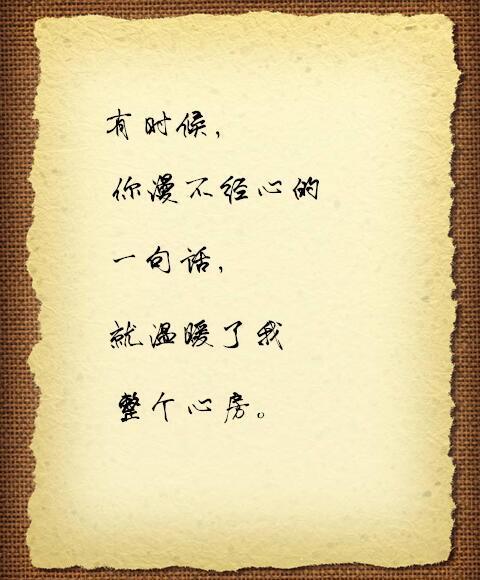 有时候，
你漫不经心的
一句话，
就温暖了我
整个心房。